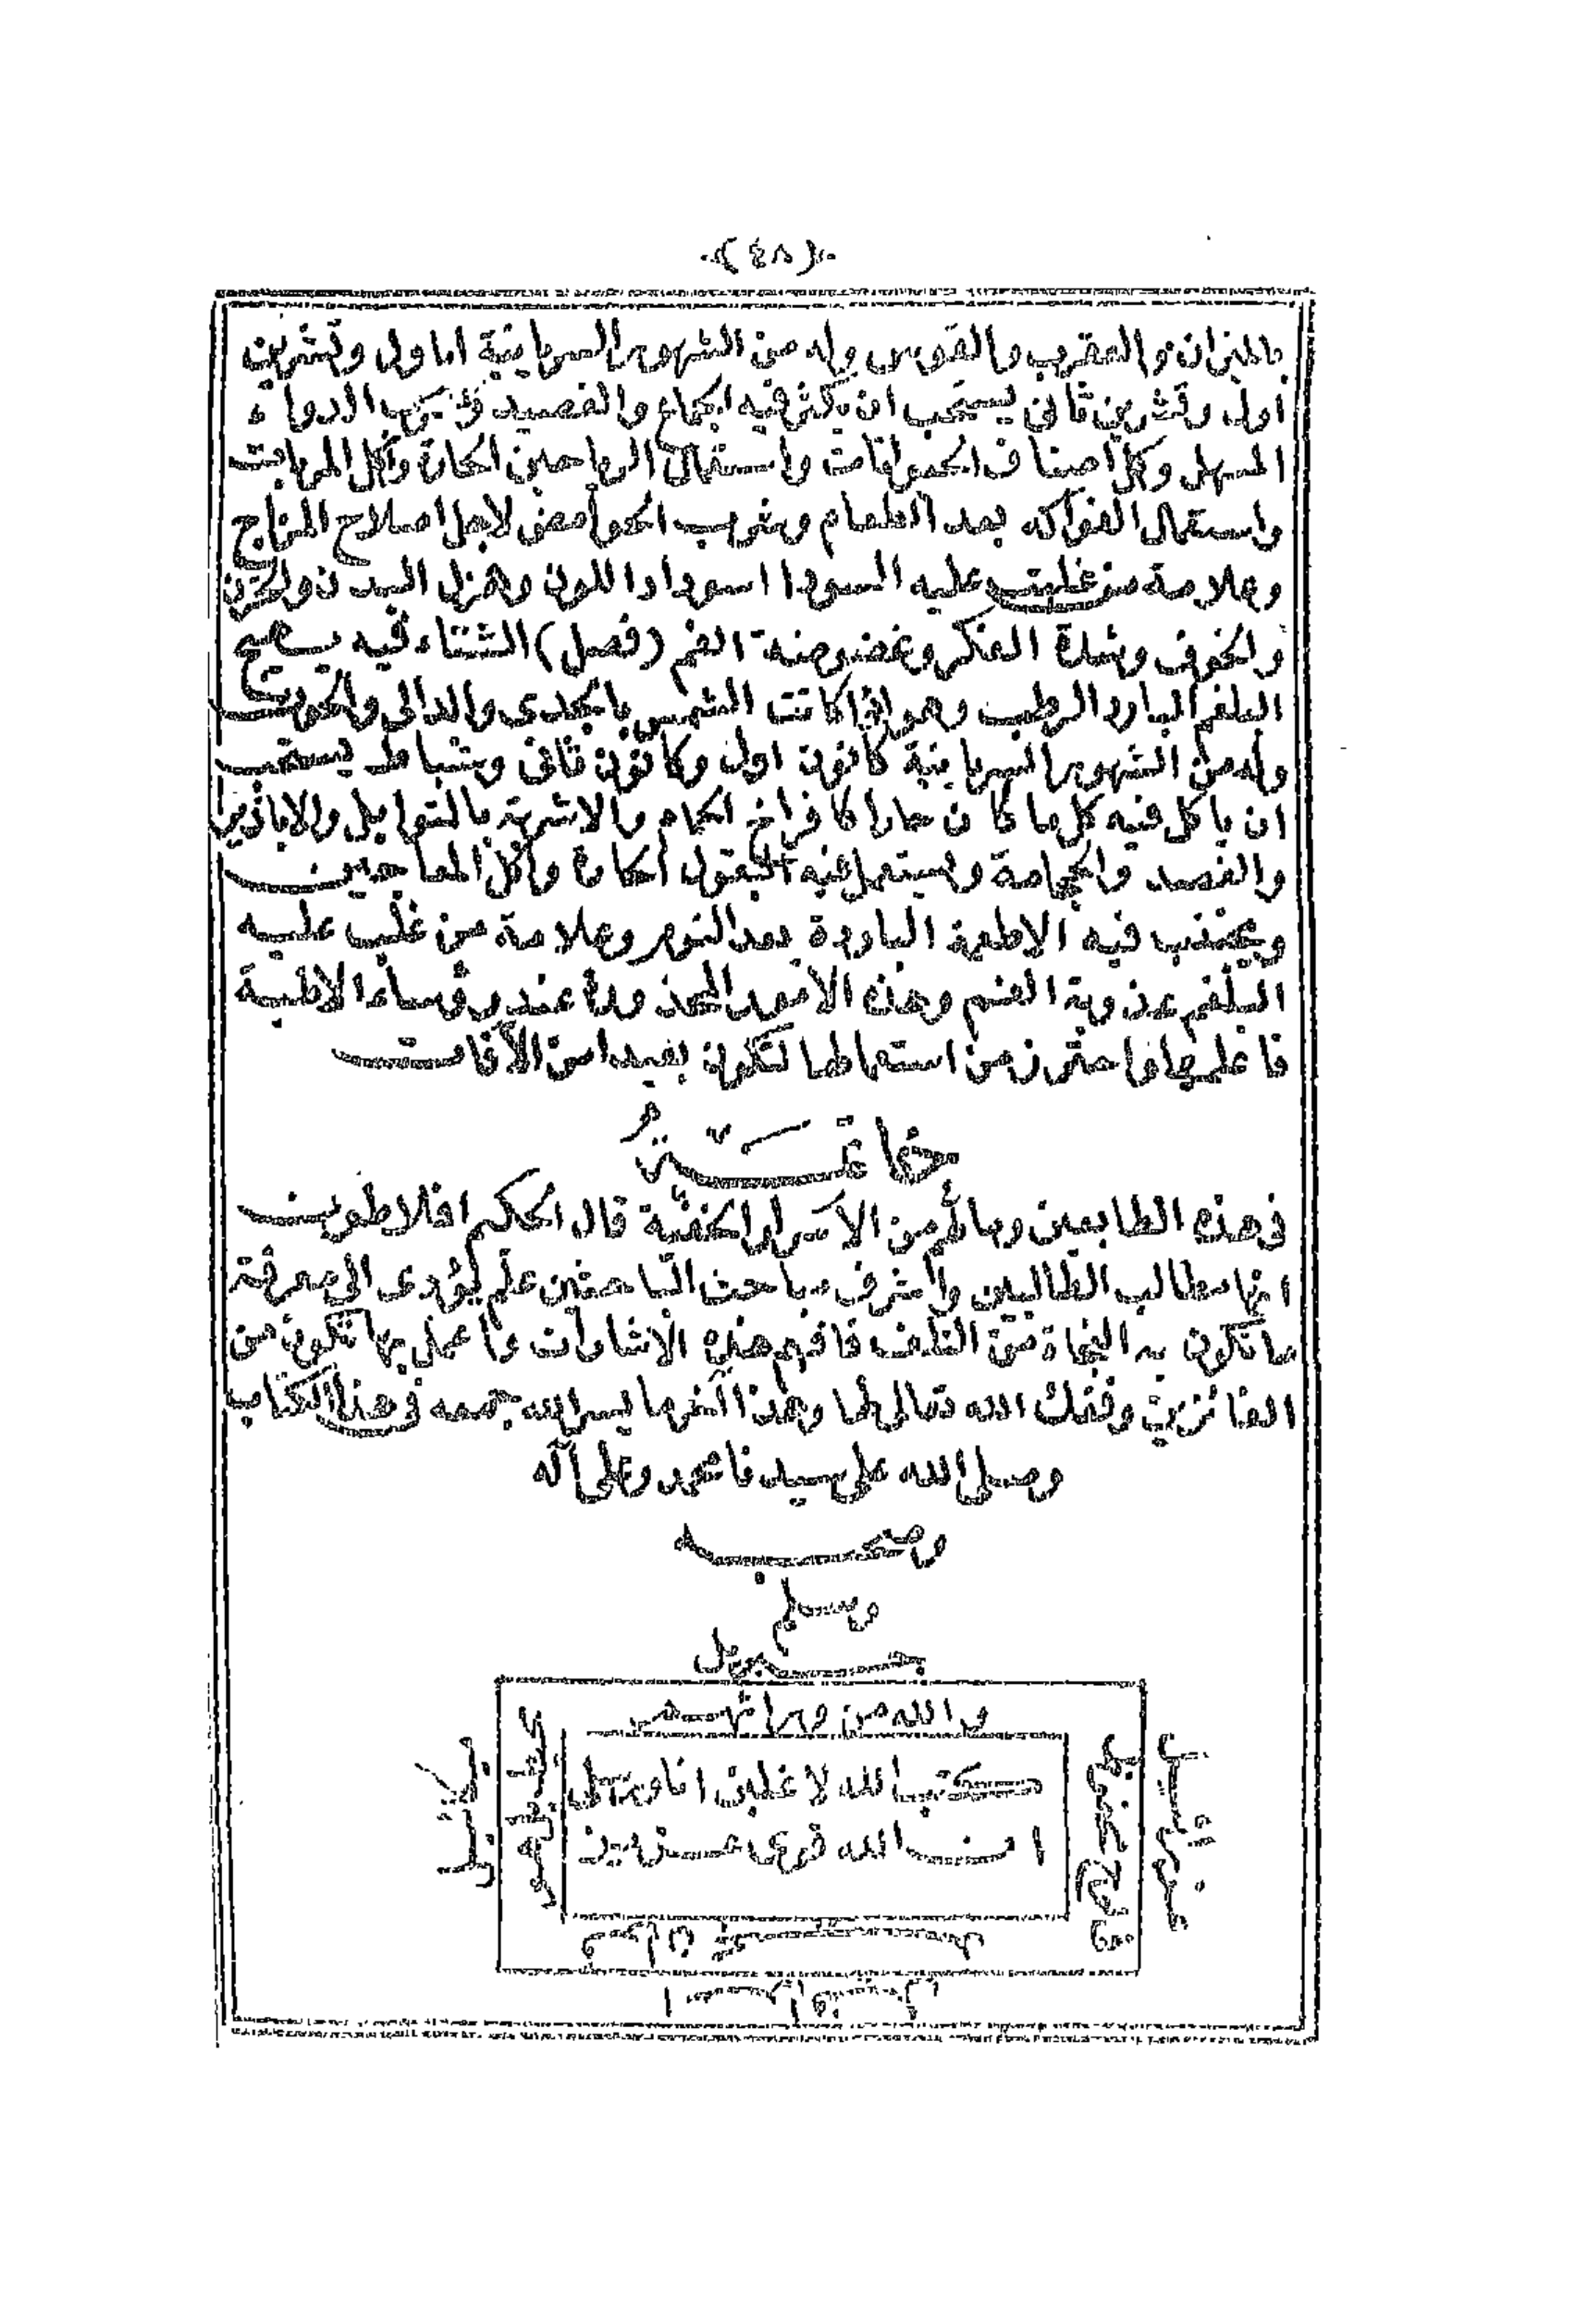 (٤٨)
بالميزان والعقرب والقوس وله من الشهور السريانية ايلول وتشرين
أول وتشرين ثانى يستحب ان يكثر فيه الجماع والفصيد وشرب الدواء
المسهل وكل أصناف الحلواقات واستعمال الرياحين الحارة وأكل المربات
واستعمال الفواكه بعد الطعام وشرب الحوامض لاجل اصلاح المزاج
وعلامة من غلبت عليه السودا اسوداد اللون وهزل البدن والحزن
والخوف وشدة الفكر وغضوضة الفم (فصل) الشتاء فيه يسيح
البلغم البارد الرطب وهو اذا كانت الشمس بالجدى والدالى والحوت
وله من الشهور السريانية كانون اول وكانون ثانى وشباط يستحب
ان ياكل فيه كل ما كان حارا كافراخ الحمام والاشربة بالتوابل والاباذير
والفصد والحجامة ويستعمل فيه البقول الحارة واكل المعاجين
ويجتنب فيه الاطعمة الباردة بعد النوم وعلامة من غلب عليه
البلغم عذوبة الفم وهذه الامور المحذورة عند رؤساء الاطبة
فاعلمها واحترز من استعمالها لتكون بعيدا من الآفات
خاتمة
فى هذه الطابعين ومالهم من الاسرار الخفية قال الحكيم افلاطون
انها مطالب الطالبين وأشرف مباحث الباحثين علم يؤدى الى معرفة
ما تكون به النجاة من التلف فافهم هذه الاشارات واعمل بها تكون من
الفائزين وفقك الله تعالى لها وهذا آخر ما يسر الله جمعه فى هذا الكتاب
وصلى الله على سيدنا محمد وعلى آله
وصحبه
وسلم
والله من ورائهم
كتب الله لاغلبن انا ورسلى
ان الله قوى عزيز